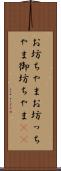 お坊ちやまお坊っち
やま御坊ちやま